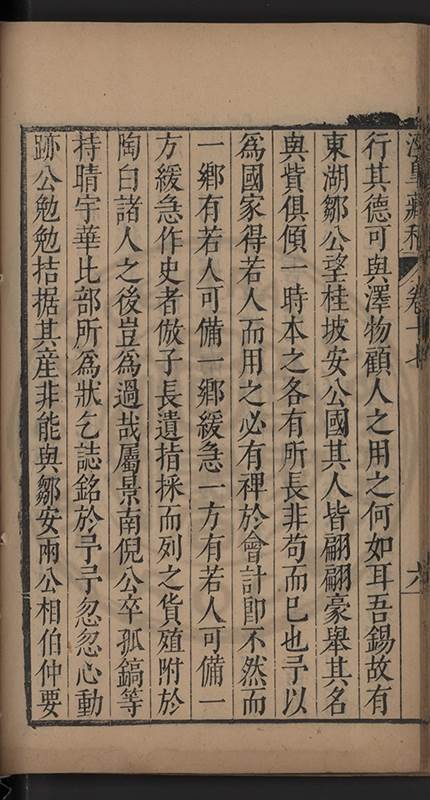 卷十七
六
行其德可與澤物顧人之用之何如耳吾錫故有
東湖鄒公望桂坡安公國其人皆翩翩豪舉其名
與貲俱傾一時本之各有所長非苟而已也予以
為國家得若人而用之必有裨於會計即不然而
一鄉有若人可備一鄉緩急一方有若人可備一
方緩急作史者倣子長遺指採而列之貨殖附於
陶白諸人之後豈為過哉屬景南倪公卒孤鎬等
持晴宇華比部所為狀乞誌銘於予予忽忽心動
跡公勉勉拮据其産非能與鄒安兩公相伯仲要